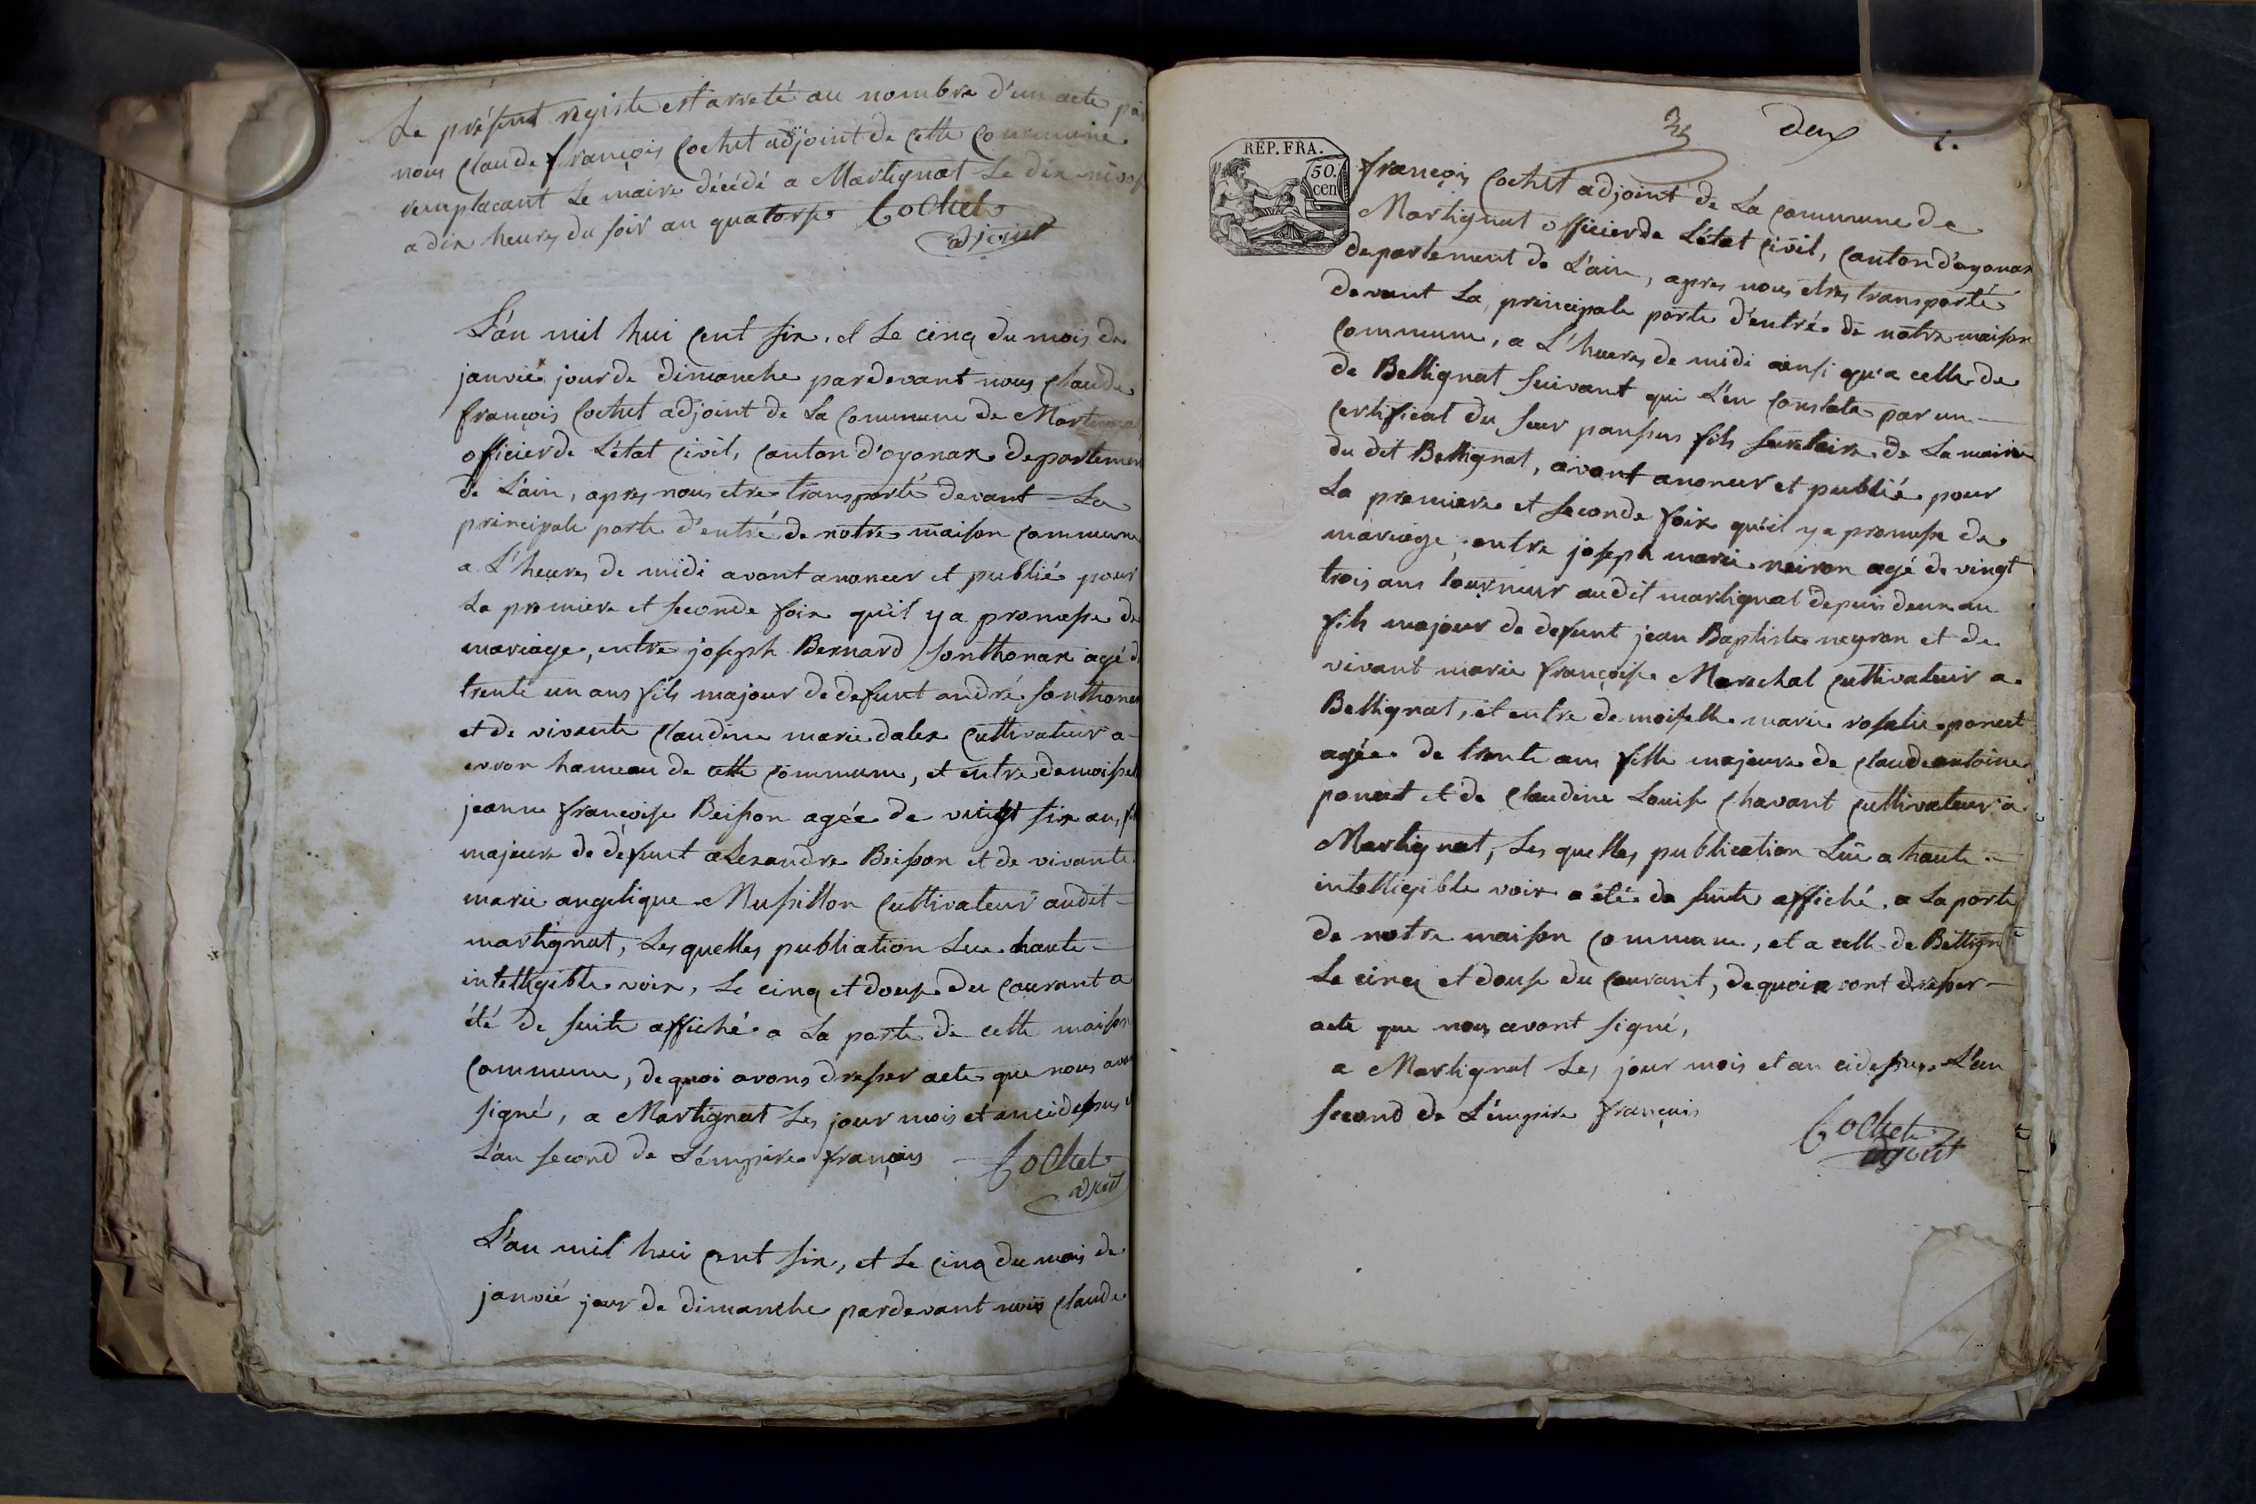 Le présent registe est arreté au nombre d'un acte par
nous Claude françois Cochet adjoint de cette Commune
remplacant Le maire décédé a Martignat Le dix nivos
a dix heures du soir an quatorse Cochet
adjoint
L'an mil hui Cent six, et Le cinq du mois de
janvié jour de dimanche pardevant nous Claude
françois Cochet adjoint de La Commune de Martigna
officier de L'état Civil, Canton d'oyonax departemen
de L'ain, apres nous etre transporté devant La
principale porte d'entré de notre maison Commune
a L'heures de midi avont anoncer et publié pour
La premiere et seconde foix qu'il y a promesse de
mariage, entre joseph Bernard sonthonax agé d
trente un ans fils majour de defunt andré sonthonax
et de vivante Claudine marie dalex Cultivateur a
evron hameau de cette Commune, et entre demoisel
jeanne françoise Beisson agée de vingt six an, fil
majeure de defunt alexandre Beisson et de vivante
marie angelique Mussillon Cultivateur audit
martignat, Les quelles publiation Lue haute
intelligible voix, Le cinq et douse du Courant a
été de suite affiché a La porte de cette maison
Commune, de quoi avons dresser acte que nous avon
signé, a Martignat Les jour mois et an cidessus
L'an second de L'émpire français Cochet
adjoint
L'an mil hui Cent six, et Le Cinq du mois de
janvié jour de dimanche pardevant nous Claude
deux
REP. FRA.
50.
cen
françois Cochet adjoint de La Commune de
Martignat officier de L'état Civil, Canton d'oyonax
departement de L'ain, apres nous etres transporté
devant La principale porte d'entré de notre maison
Commune, a L'heures de midi ainsi qu'a celle de
de Bellignat suivant qui L'en Constate par un
Certificat du sieur pansus fils secretaire de La mairie
du dit Bellignat, avont anoncer et publié pour
La premiere et seconde foix qu'il y a promesse de
mariage, entre joseph marie neiron agé de vingt
trois ans tourneur audit martignat depuis deux an
fils majour de defunt jean Baptiste neyron et de
vivant marie françoise Marechal Cultivateur a
Bellignat, et entre demoiselle marie rosalie poncet
agée de trente ans fille majeure de Claude antoine
poncet et de Claudine Louise Chavant Cultivateur a
Martignat, Les quelles publication Lüe a haute
intelligible voix a été de suite affiché, a La porte
de notre maison Commune, et a celle de Bellign
Le cinq et douse du Courant, de quoix vont dresser
acte que nous avont signé,
a Martignat Les jour mois et an cidessus L'an
second de L'émpire français
Cochet
adjoint